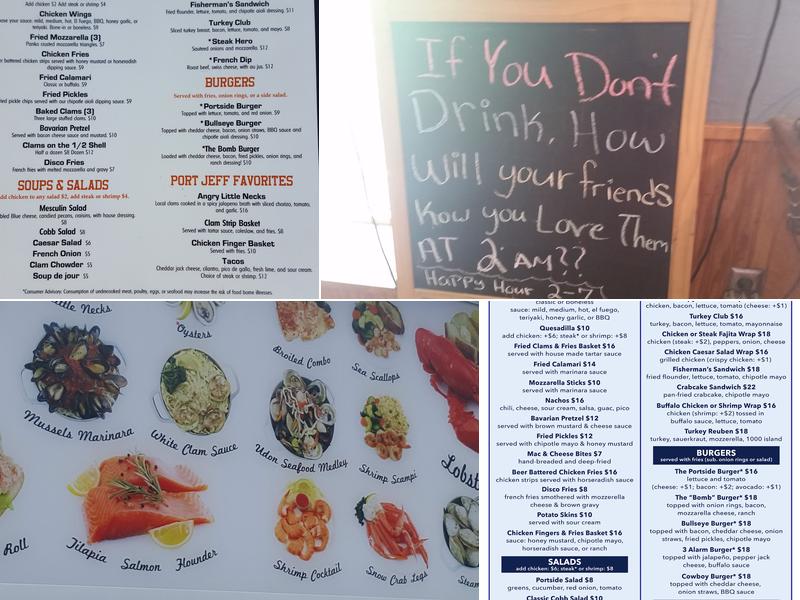 Add chicken $2 Add steak or shrimp $4
Chicken Wings
ose your sauce. mild, medium, hot, El Fuego, BBQ, honey garlic, or
teriyaki. Bone-in or boneless. $9
Fried Mozzarella (3)
Panko crusted mozzarella triangles. $7
Chicken Fries
er battered chicken strips served with honey mustard or horseradish
dipping sauce. $9
Fried Calamari
Classic or buffalo. $9
Fried Pickles
ied pickle chips served with our chipotle aioli dipping sauce. $9
Baked Clams (3)
Three large stuffed clams. $10
Bavarian Pretzel
Served with bacon cheese sauce and mustard. $10
Clams on the 1/2 Shell
Half a dozen $8 Dozen $12
Disco Fries
French fries with melted mozzarella and gravy $7
SOUPS & SALADS
add chicken to any salad $2, add steak or shrimp $4.
Mesculin Salad
bled Blue cheese, candied pecans, craisins, with house dressing.
$8
Cobb Salad $8
Caesar Salad $6
French Onion $5
Clam Chowder $5
Soup de jour $5
Fisherman's Sandwich
Fried flounder, lettuce, tomato, and chipotle aioli dressing. $11
Turkey Club
Sliced turkey breast, bacon, lettuce, tomato, and mayo. $8
*Steak Hero
Sauteed onions and mozzarella. $12
*French Dip
Roast beef, swiss cheese, with au jus. $12
BURGERS
Served with fries, onion rings, or a side salad.
*Portside Burger
Topped with lettuce, tomato, and red onion. $9
*Bullseye Burger
Topped with cheddar cheese, bacon, onion straws, BBQ sauce and
chipotle aioli dressing. $10
*The Bomb Burger
Loaded with cheddar cheese, bacon, fried pickles, onion rings, and
ranch dressing! $10
PORT JEFF FAVORITES
Angry Little Necks
Local clams cooked in a spicy jalapeno broth with sliced chorizo, tomato,
and garlic. $16
Clam Strip Basket
Served with tartar sauce, coleslaw, and fries. $8
Chicken Finger Basket
Served with fries. $10
Tacos
Cheddar jack cheese, cilantro, pico de gallo, fresh lime, and sour cream.
Choice of steak or shrimp. $12
*Consumer Advisory: Consumption of undercooked meat, poultry, eggs, or seafood may increase the risk of food borne illnesses.
If You Don't
Drink, How
Will your friends
Know you Love Them
AT 2 AM??
Happy Hour 2-7
Little Necks
Oysters
Broiled Combo
Sea Scallops
Mussels Marinara
White Clam Sauce
Udon Seafood Medley
Shrimp Scampi
Lobst
Roll
Tilapia Salmon Flounder
Shrimp Cocktail
Snow Crab Legs
Steam
classic or boneless
sauce: mild, medium, hot, el fuego,
teriyaki, honey garlic, or BBQ
Quesadilla $10
add chicken: +$6; steak* or shrimp: +$8
Fried Clams & Fries Basket $16
served with house made tartar sauce
Fried Calamari $14
served with marinara sauce
Mozzarella Sticks $10
served with marinara sauce
Nachos $16
chili, cheese, sour cream, salsa, guac, pico
Bavarian Pretzel $12
served with brown mustard & cheese sauce
Fried Pickles $12
served with chipotle mayo & honey mustard
Mac & Cheese Bites $7
hand-breaded and deep-fried
Beer Battered Chicken Fries $16
chicken strips served with horseradish sauce
Disco Fries $8
french fries smothered with mozzerella
cheese & brown gravy
Potato Skins $10
served with sour cream
Chicken Fingers & Fries Basket $16
sauce: honey mustard, chipotle mayo,
horseradish sauce, or ranch
SALADS
add chicken: $6; steak* or shrimp: $8
Portside Salad $8
greens, cucumber, red onion, tomato
Classic Cobb Salad $10
chicken, bacon, lettuce, tomato (cheese: +$1)
Turkey Club $16
turkey, bacon, lettuce, tomato, mayonnaise
Chicken or Steak Fajita Wrap $18
chicken (steak: +$2), peppers, onion, cheese
Chicken Caesar Salad Wrap $16
grilled chicken (crispy chicken: +$1)
Fisherman's Sandwich $18
fried flounder, lettuce, tomato, chipotle mayo
Crabcake Sandwich $22
pan-fried crabcake, chipotle mayo
Buffalo Chicken or Shrimp Wrap $16
chicken (shrimp: +$2) tossed in
buffalo sauce, lettuce, tomato
Turkey Reuben $18
turkey, sauerkraut, mozzerella, 1000 island
BURGERS
served with fries (sub. onion rings or salad)
The Portside Burger* $16
lettuce and tomato
(cheese: +$1; bacon: +$2; avocado: +$1)
The "Bomb" Burger* $18
topped with onion rings, bacon,
mozzarella cheese, ranch
Bullseye Burger* $18
topped with bacon, cheddar cheese, onion
straws, fried pickles, chipotle mayo
3 Alarm Burger* $18
topped with jalapeño, pepper jack
cheese, buffalo sauce
Cowboy Burger* $18
topped with cheddar cheese,
onion straws, BBQ sauce